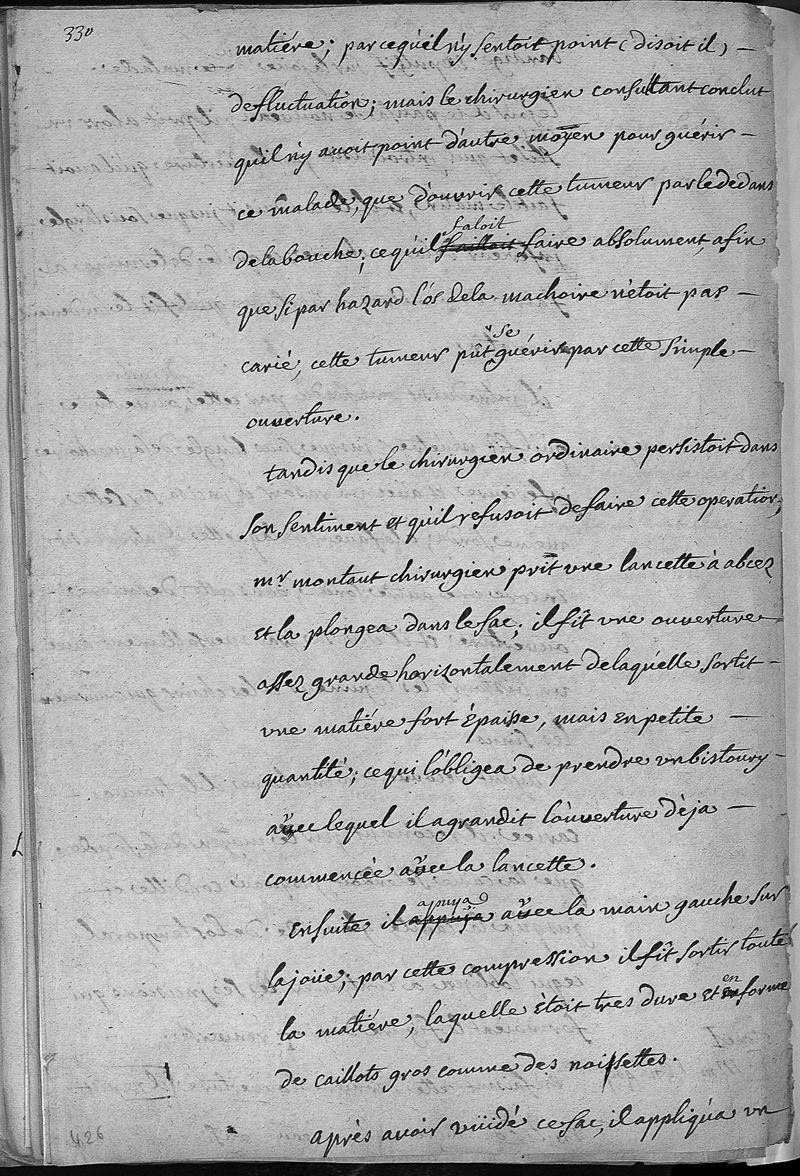 330
matiére; parcequ'il n'y sentoit point (disoit il) —
de fluctuation; mais le chirurgien consultant conclut
qu'il n'y avoit point d'autre moyen pour guérir —
ce malade, que d'ouvrir cette tumeur par le dedans
de la bouche; ce qu'il failloit faloit faire absolument, afin
que si par hazard l'os de la machoire n'étoit pas —
carié, cette tumeur pût se guérir par cette simple —
ouverture.
tandis que le chirurgien ordinaire persistoit dans
son sentiment et qu'il refusoit de faire cette operation,
mr montaut chirurgien prit une lancette à abcez
et la plongea dans le sac; il fit une ouverture —
assez grande horizontalement de laquélle sortit —
une matiére fort épaisse, mais en petite —
quantité; ce qui l'obligea de prendre un bistoury —
avec lequel il agrandit l'ouverture déja —
commencée avec la lancette.
Ensuite il appuya avec la main gauche sur
la joüe; par cette compression il fit sortir toute
la matiére, laquelle étoit tres dure et en forme
de caillots gros comme des noissettes.
après avoir vüidé ce sac, il appliqua un
426